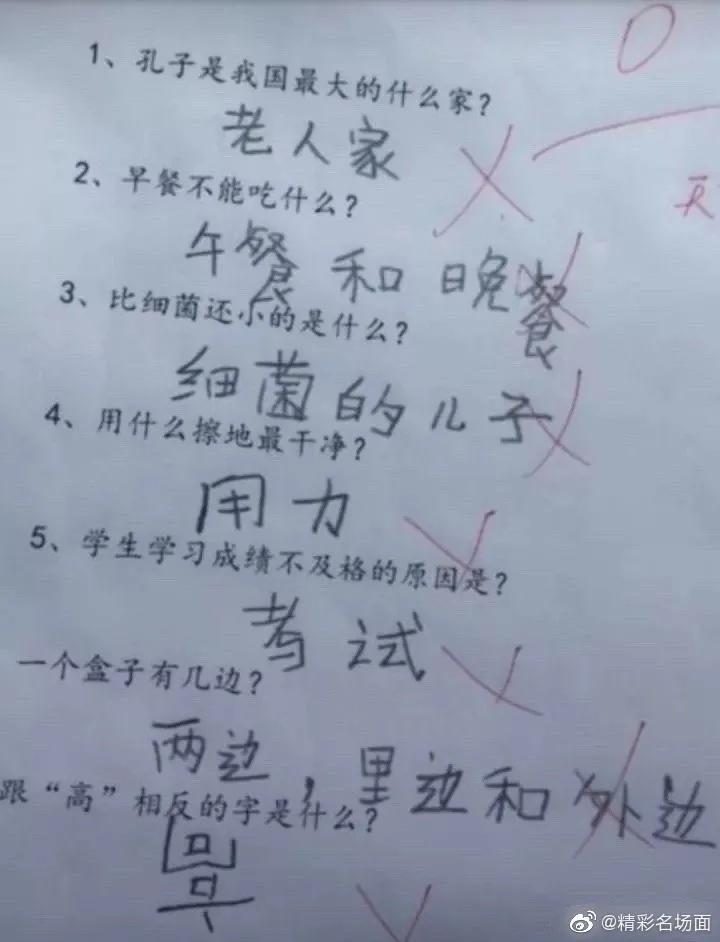 0
1、孔子是我国最大的什么家？
老人家
2、早餐不能吃什么？
午餐和晚餐
3、比细菌还小的是什么？
细菌的儿子
4、用什么擦地最干净？
用力
5、学生学习成绩不及格的原因是？
考试
一个盒子有几边？
两边，里边和外边
跟“高”相反的字是什么？
@精彩名场面